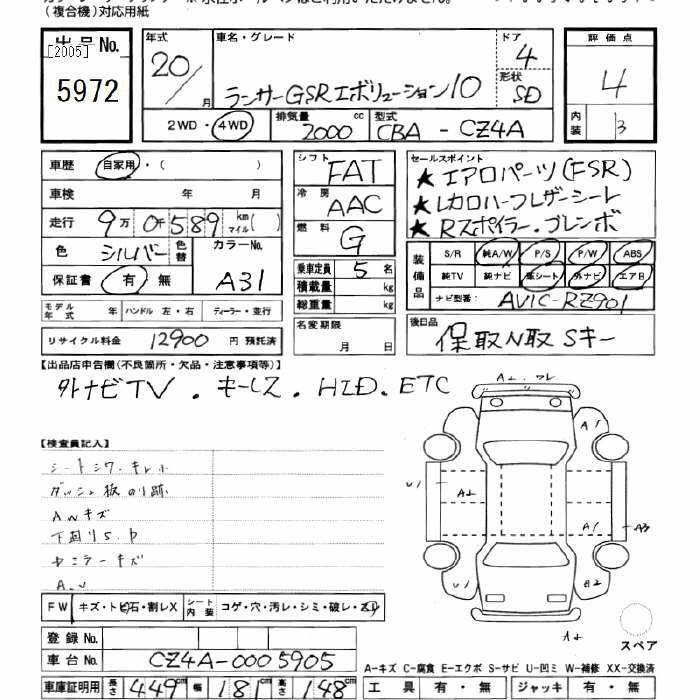 (複合機)対応用紙
出品No. 年式 車名・グレード ドア 評価点
[2005] 5972 20/ 月 ランサーGSRエボリューション10 4 形状 SD 4
2WD・4WD 排気量 2000 cc 型式 CBA - CZ4A 内装 B
車歴 自家用・( ) シフト FAT セールスポイント
★エアロパーツ(FSR)
車検 年 月 冷房 AAC ★レカロハーフレザーシート
走行 9万0千589 km マイル( ) 燃料 G ★Rスポイラー.ブレンボ
色 シルバー 色替 カラーNo. A31 乗車定員 5名 装備品 S/R 純A/W P/S P/W ABS
保証書 有・無 積載量 kg 純TV 純ナビ 革シート 外ナビ エアB
総重量 kg ナビ型番: AVIC-RZ901
モデル年式 年 ハンドル 左・右 ディーラー・並行
リサイクル料金 12900 円 預託済 名変期限 月 日 後日品 保取N取Sキー
【出品店申告欄(不良箇所・欠品・注意事項等)】
外ナビTV . キーレス . HID . ETC
【検査員記入】
シートシワ・キレ
ダッシュ板のり跡
AWキズ
下廻りS.
ミラーキズ
A1
U1 A2 A1 A3
U1
FW キズ・トビ石・割レX シート内装 コゲ・穴・汚レ・シミ・破レ・スリ
登録No. スペア
車台No. CZ4A-0005905 A-キズ C-腐食 E-エクボ S-サビ U-凹ミ W-補修 XX-交換済
車庫証明用 長さ 449cm 幅 181cm 高さ 148cm 工具 有・無 ジャッキ 有・無